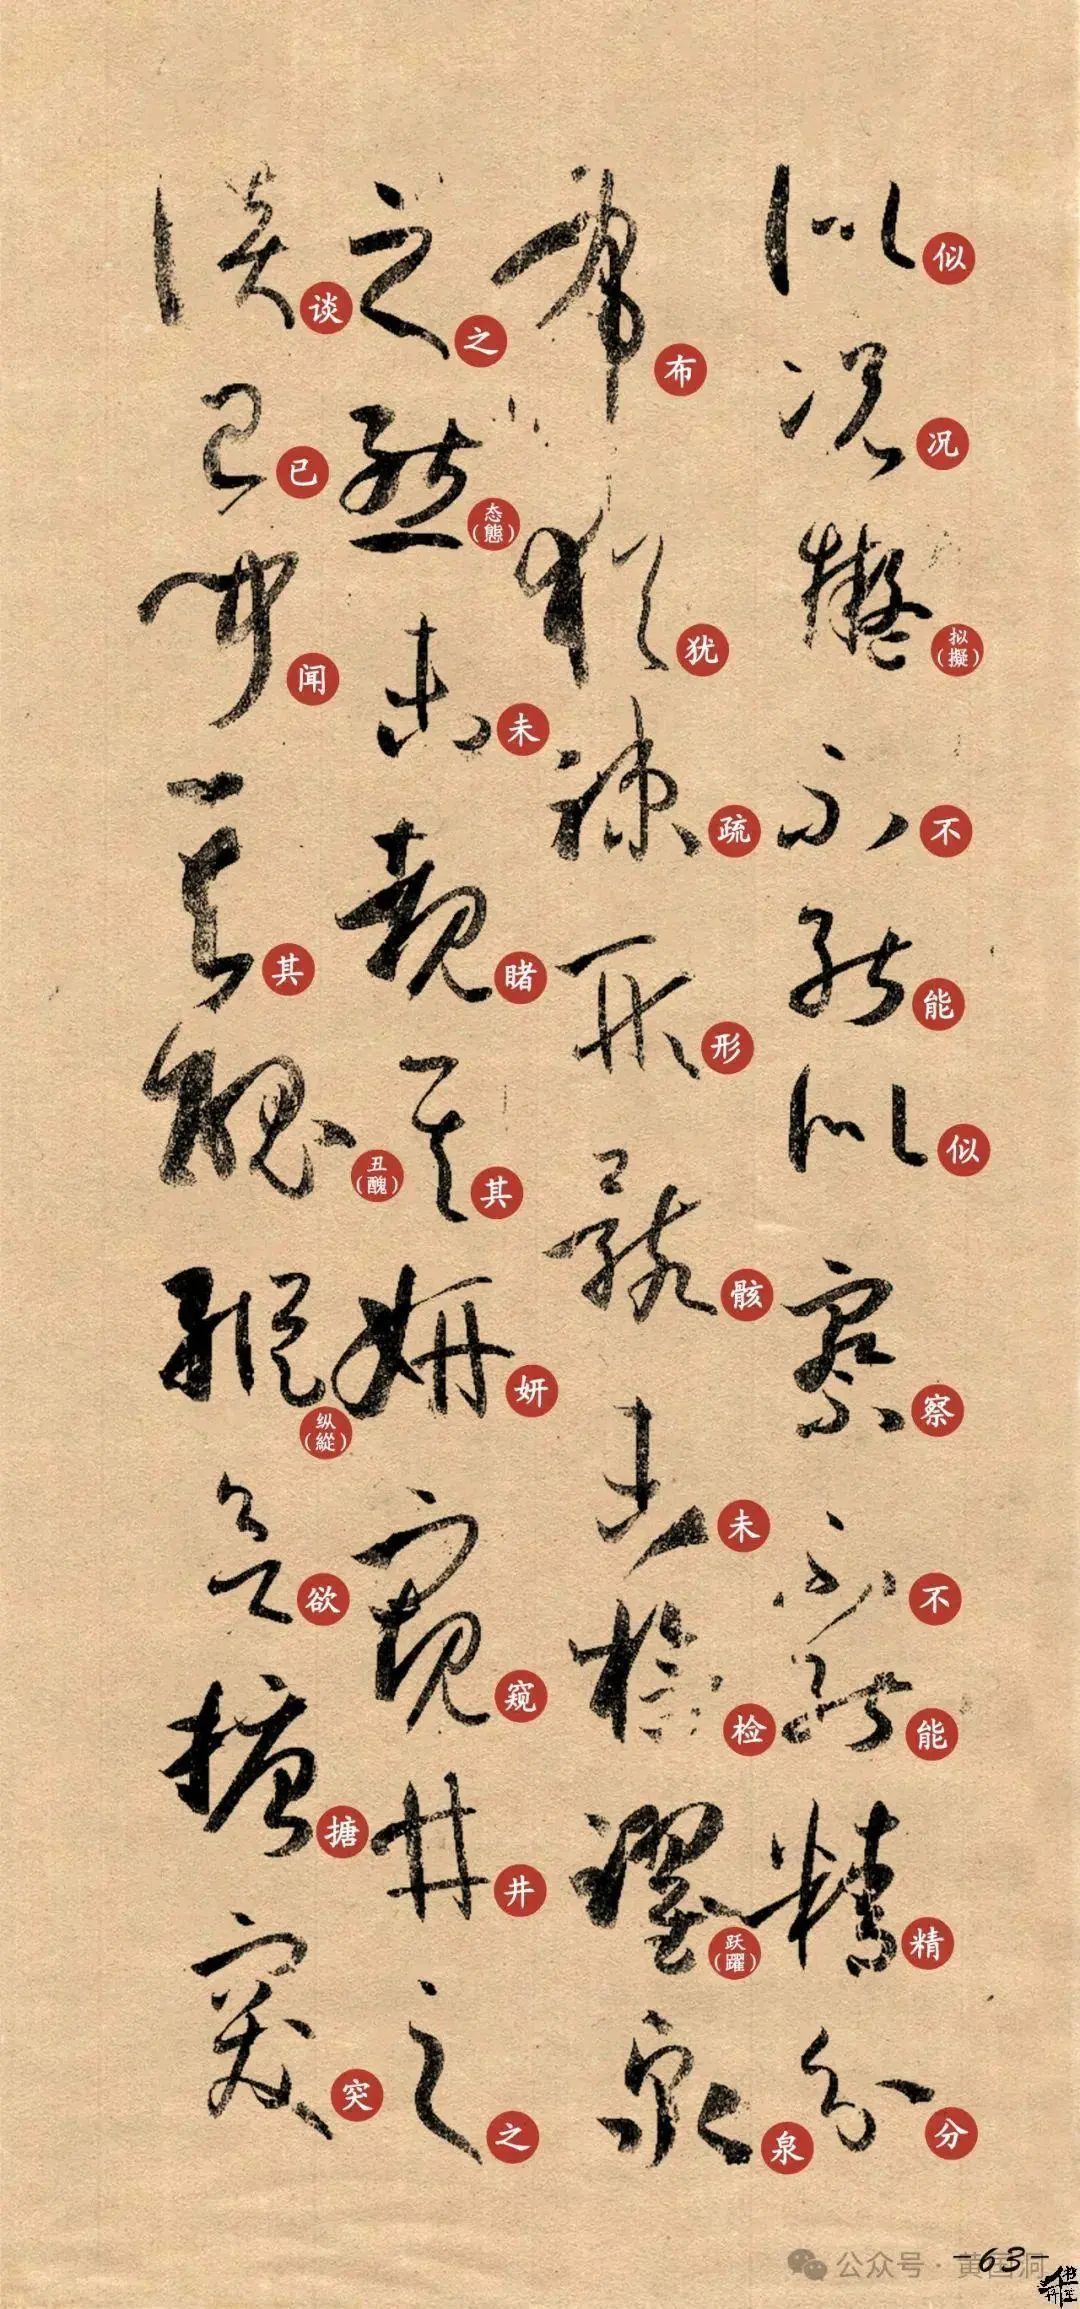 似况拟(擬)不能似察不能精分
布犹疏形骸未检跃(躍)泉
之态(態)未睹其妍窥井之
谈已闻其丑(醜)纵(縱)欲搪突
-63-
公众号·黄